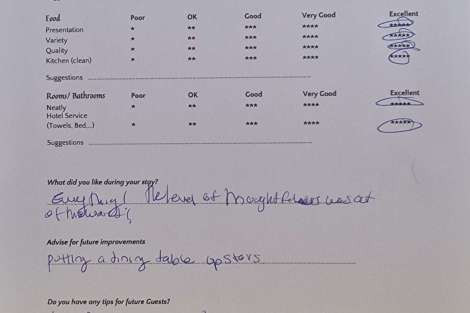 Food Poor OK Good Very Good Excellent
Presentation * ** *** **** *****
Variety * ** *** **** *****
Quality * ** *** **** *****
Kitchen (clean) * ** *** **** *****
Suggestions
Rooms/ Bathrooms Poor OK Good Very Good Excellent
Neatly * ** *** **** *****
Hotel Service
(Towels, Bed...) * ** *** **** *****
Suggestions
What did you like during your stay?
Everything! The level of thoughtfulness was out
of
Advise for future improvements
putting a dining table upstairs
Do you have any tips for future Guests?